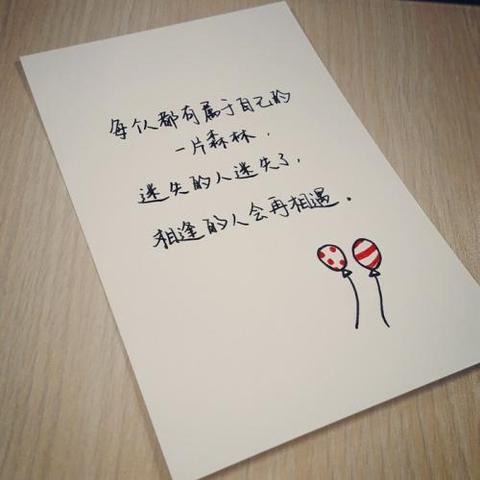 每个人都有属于自己的
一片森林，
迷失的人迷失了，
相逢的人会再相遇。